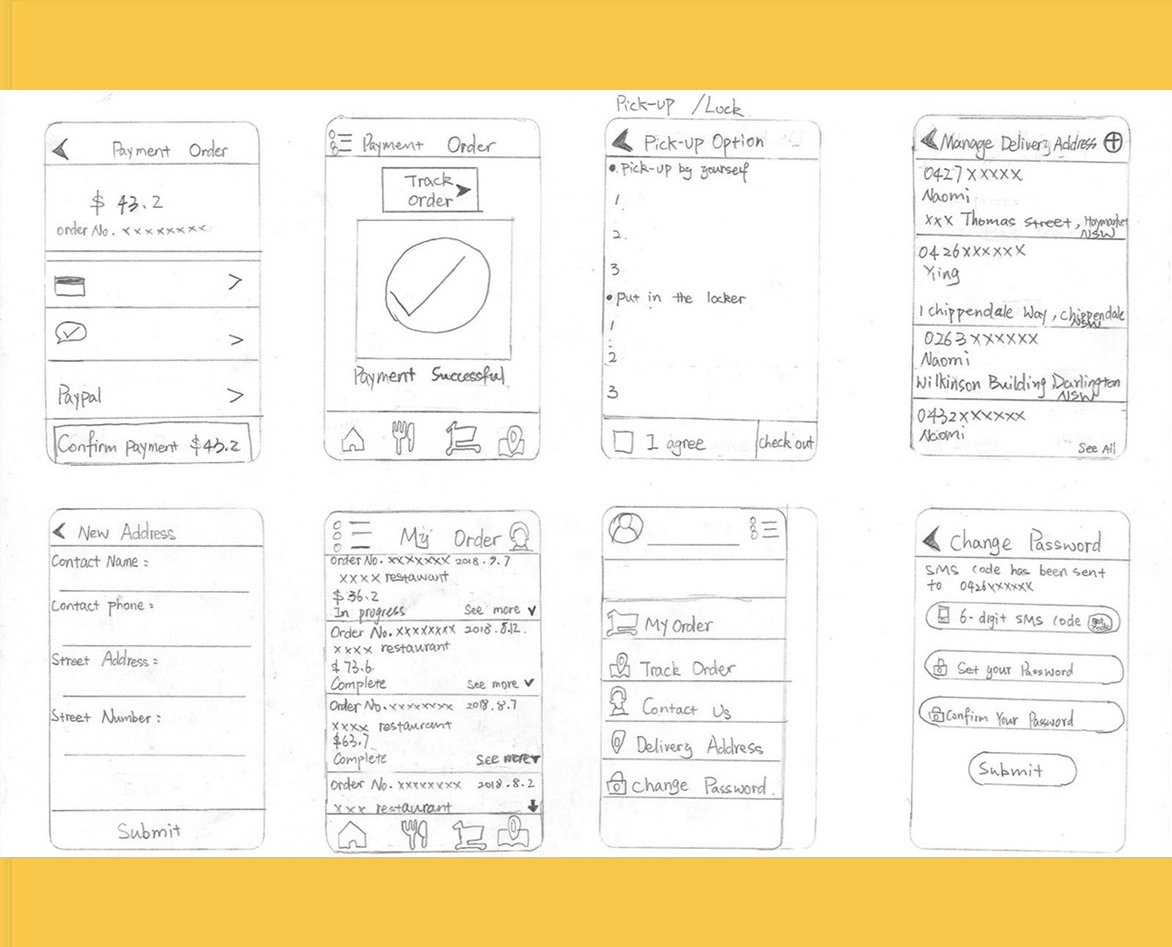 Payment Order
$ 43.2
order No. xxxxxxxx
Paypal
Confirm payment $43.2
Payment Order
Track
order
Payment Successful
Pick-up /Lock
Pick-up Option
• Pick-up by yourself
1
2.
3
• Put in the locker
1
2
3
I agree
Check out
Manage Delivery Address
0427XXXXX
Naomi
xxx Thomas Street, Haymarket
NSW
0426XXXXXX
Ying
1 chippendale Way, chippendale
NSW
0263XXXXXX
Naomi
Wilkinson Building Darlington
NSW
0432XXXXXX
Naomi
See All
New Address
Contact Name:
Contact phone:
Street Address:
Street Number:
Submit
My Order
Order No. xxxxxxxx 2018.9.7
xxxx restaurant
$36.2
In progress See more
Order No. xxxxxxxx 2018.8.12.
xxxx restaurant
$73.6
Complete See more
Order No. xxxxxxxx 2018.8.7
xxxx restaurant
$63.7
Complete See more
Order No. xxxxxxxx 2018.8.2
xxx restaurant
My Order
Track Order
Contact Us
Delivery Address
Change Password.
Change Password
SMS code has been sent
to 0426xxxxxx
6-digit SMS code get code
Set your Password
Confirm Your Password
Submit